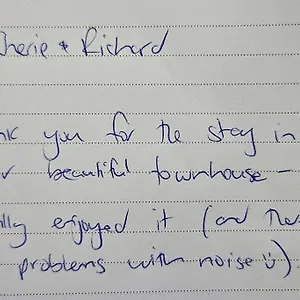 Cherie & Richard
nk you for the stay in
r beautiful townhouse -
lly enjoyed it (and the
problems with noise ☺)